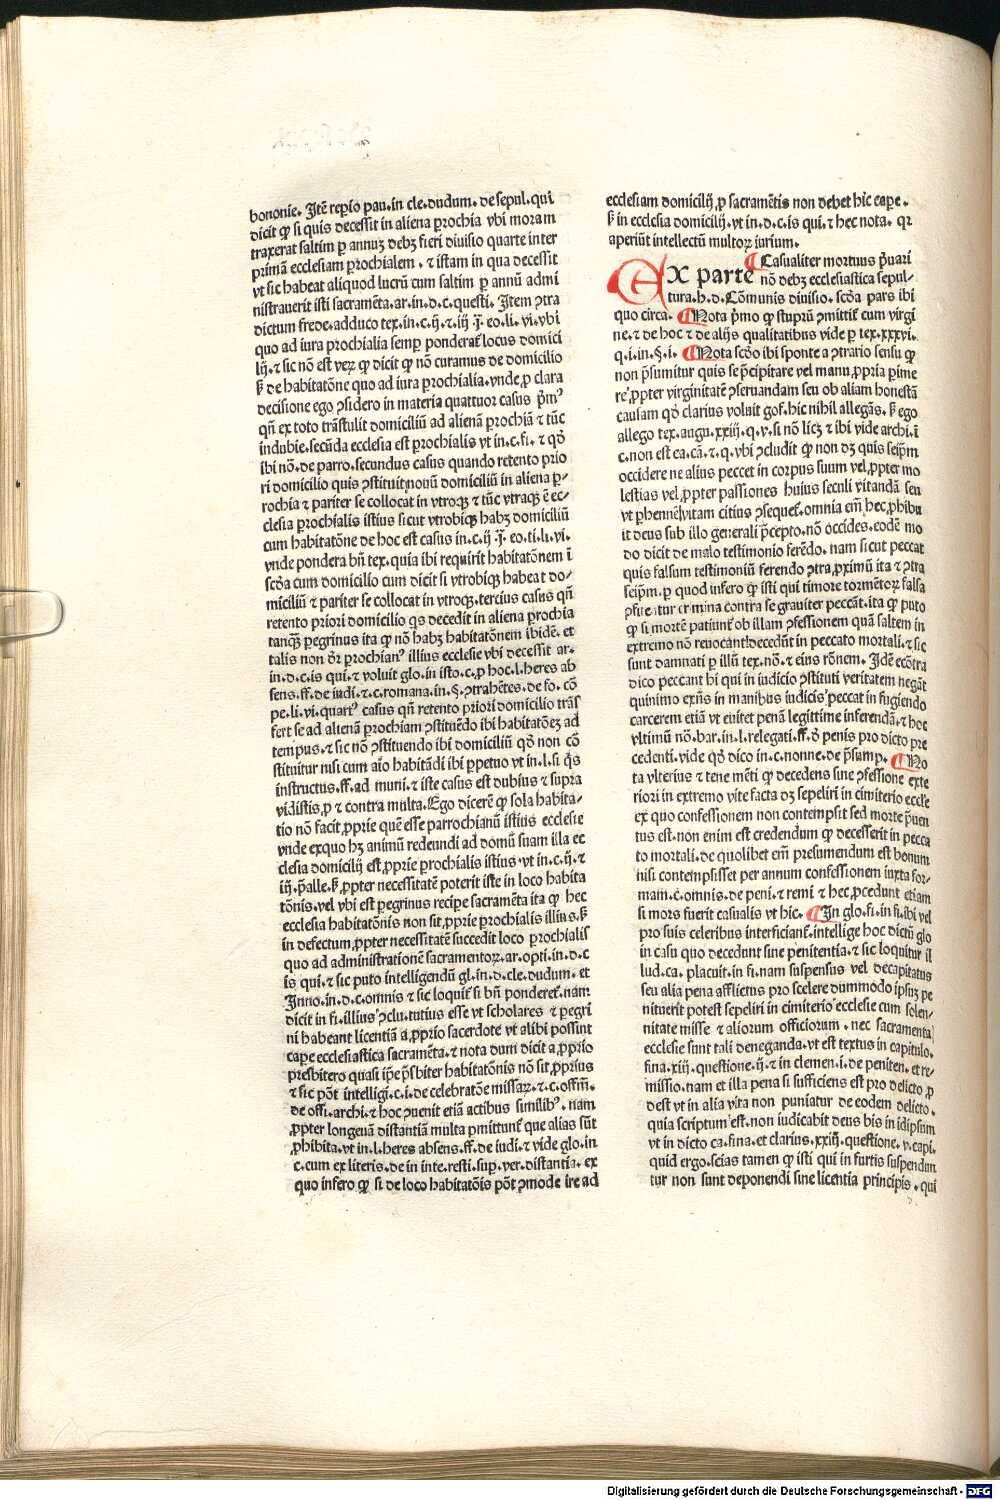 bononie. Itē reperio pau.in cle.dudum. de sepul. qui
dicit ꝙ si quis decessit in aliena ꝑrochia vbi moram
traxerat saltim ꝑ annuꝫ debꝫ fieri diuisio quarte inter
primā ecclesiam ꝑrochialem . ⁊ istam in qua decessit
vt sic habeat aliquod lucrū cum saltim ꝑ annū admi
nistrauerit isti sacramēta.ar.in.d.c.questi. Item ꝯtra
dictum frede.adduco tex.in.c.ij.⁊ iij .j̄. eo.li. vi.vbi
quo ad iura ꝑrochialia semꝑ ponderat᷒ locus domici
lij.⁊ sic nō est veꝝ ꝙ dicit ꝙ nō curamus de domicilio
ꝭ de habitatōne quo ad iura ꝑrochialia.vnde ꝓ clara
decisione ego ꝯsidero in materia quattuor casus p̄mꝰ
qn̄ ex toto trāstulit domiciliū ad alienā ꝑrochiā ⁊ tūc
indubie.secūda ecclesia est ꝑrochialis vt in.c.fi. ⁊ qđ
ibi nō.de parro.secundus casus quando retento prio
ri domicilio quis ꝯstituit nouū domiciliū in aliena ꝑ-
rochia ⁊ pariter se collocat in vtroqꝫ ⁊ tūc vtraqꝫ ē ec-
clesia ꝑrochialis istius sicut vtrobiqꝫ habꝫ domiciliū
cum habitatōne de hoc est casus in.c.ij .j̄. eo.ti.li.vi.
vnde pondera bn̄ tex.quia ibi requirit habitatōnem ī
scđa cum domicilio cum dicit si vtrobiqꝫ habeat do/
miciliū ⁊ pariter se collocat in vtroqꝫ.tercius casus qn̄
retento priori domicilio qs decedit in aliena ꝑrochia
tanqꝫ ꝑegrinus ita ꝙ nō habꝫ habitatōnem ibidē. et
talis non dr̄ ꝑrochianꝰ illius ecclesie vbi decessit ar.
in.d.c.is qui.⁊ voluit glo.in isto.c.ꝓ hoc.l.heres ab
sens.ff.de iudi.⁊.c.romana.in.§.ꝯtrahētes.de fo. cō
pe.li.vi.quartꝰ casus qn̄ retento priori domicilio trās
fert se ad alienā ꝑrochiam ꝯstituēdo ibi habitatōeꝫ ad
tempus.⁊ sic nō ꝯstituendo ibi domiciliū qđ non cō
stituitur nisi cum aīo habitādi ibi ꝑpetuo vt in.l.si q̄s
instructus.ff.ad muni.⁊ iste casus est dubius ⁊ supra
vidistis ꝓ ⁊ contra multa. Ego dicerē ꝙ sola habita/
tio nō facit ꝓprie quē esse parrochianū istius ecclesie
vnde exquo hꝫ animū redeundi ad domū suam illa ec
clesia domicilij est ꝓprie ꝑrochialis istius.vt in.c.ij.⁊
iij.p̄alle.ꝭ ꝓpter necessitatē poterit iste in loco habita
tōnis.vel vbi est ꝑegrinus recipe sacramēta ita ꝙ hec
ecclesia habitatōnis non sit ꝓprie ꝑrochialis illius.ꝭ
in defectum ꝓpter necessitatē succedit loco ꝑrochialis
quo ad administrationē sacramentoꝝ.ar.opti.in.d.c
is qui.⁊ sic puto intelligendū gl.in.d.cle.dudum. et
Inno.in.d.c.omnis ⁊ sic loquit᷒ si bn̄ ponderet᷒.nam
dicit in fi.illius ꝯclu.tutius esse vt scholares ⁊ ꝑegri
ni habeant licentiā a ꝓprio sacerdote vt alibi possint
caꝑe ecclesiastica sacramēta.⁊ nota dum dicit a ꝓprio
presbitero quasi ip̄e p̄sbiter habitatōnis nō sit ꝓprius
⁊ sic pōt intelligi.c.i.de celebratōne missaꝝ.⁊.c.offm̄.
de offi.archi.⁊ hoc ꝓuenit etiā actibus similibꝰ. nam
ꝓpter longeuā distantiā multa ꝑmittunt᷒ que alias sūt
ꝓhibita.vt in.l.heres absens.ff.de iudi.⁊ vide glo.in
c.cum ex literis.de in inte.resti.suꝑ.ver.distantia. ex
quo infero ꝙ si de loco habitatōis pōt ꝯmode ire ad
ecclesiam domicilij ꝓ sacramētis non debet hic caꝑe.
ꝭ in ecclesia domicilij.vt in.d.c.is qui.⁊ hec nota. qꝛ
aperiūt intellectū multoꝝ iurium.
¶ Casualiter mortuus p̄uari
Ex parte nō debꝫ ecclesiastica sepul-
tura.h.d.Cōmunis diuisio. scđa pars ibi
quo circa. ¶ Nota p̄mo ꝙ stuprū ꝯmittit᷒ cum virgi
ne.⁊ de hoc ⁊ de alijs qualitatibus vide ꝑ tex.xxxvi.
q.i.in.§.i. ¶ Nota scđo ibi sponte a ꝯtrario sensu ꝙ
non p̄sumitur quis se p̄cipitare vel manu ꝓpria ꝑime
re ꝓpter virginitatē ꝯseruandam seu ob aliam honestā
causam qđ clarius voluit gof.hic nihil allegās. ꝭ ego
allego tex.augu.xxiij.q.v.si nō licꝫ ⁊ ibi vide archi.ī
c.non est ea.cā.⁊.q.vbi ꝯcludit ꝙ non dꝫ quis seip̄m
occidere ne alius peccet in corpus suum vel ꝓpter mo
lestias vel ꝓpter passiones huius seculi vitandā seu
vt ꝑhennē vitam citius ꝯsequet᷒. omnia em̄ hec ꝓhibu
it deus sub illo generali p̄cepto.nō occides.eodē mo
do dicit de malo testimonio ferēdo. nam sicut peccat
quis falsum testimoniū ferendo ꝯtra ꝓximū ita ⁊ ꝯtra
seip̄m. ꝑ quod infero ꝙ isti qui timore tormētoꝝ falsa
ꝯfitentur crimina contra se grauiter peccāt.ita ꝙ puto
ꝙ si mortē patiunt᷒ ob illam ꝯfessionem quā saltem in
extremo nō reuocant decedūt in peccato mortali.⁊ sic
sunt damnati ꝑ illū tex.nō.⁊ eius rōnem. Idē ecōtra
dico peccant hi qui in iudicio ꝯstituti veritatem negāt
quinimo exn̄s in manibus iudicis peccat in fugiendo
carcerem etiā vt euitet penā legittime inferendā.⁊ hoc
vltimū nō.bar.in.l.relegati.ff.đ penis pro dicto pre
cedenti.vide qđ dico in.c.nonne.de p̄sump. ¶ No
ta vlterius ⁊ tene mēti ꝙ decedens sine ꝯfessione exte
riori in extremo vite facta dꝫ sepeliri in cimiterio eccle
ex quo confessionem non contempsit sed morte p̄uen
tus est.non enim est credendum ꝙ decesserit in pecca
to mortali.de quolibet em̄ presumendum est bonum
nisi contempsisset per annum confessionem iuxta for-
mam.c.omnis.de peni.⁊ remi ⁊ hec ꝓcedunt etiam
si mors fuerit casualis vt hic. ¶ In glo.fi.in fi.ibi vel
pro suis celeribus interficiant᷒.intellige hoc dictū glo
in casu quo decedunt sine penitentia.⁊ sic loquitur il
lud.ca. placuit.in fi.nam suspensus vel decapitatus
seu alia pena afflictus pro scelere dummodo ipsuꝫ pe
nituerit potest sepeliri in cimiterio ecclesie cum solen-
nitate misse ⁊ aliorum officiorum . nec sacramenta
ecclesie sunt tali deneganda.vt est textus in capitulo.
fina.xiij.questione.ij.⁊ in clemen.i.de peniten. et re-
missio.nam et illa pena si sufficiens est pro delicto ꝓ
dest vt in alia vita non puniatur de eodem delicto.
quia scriptum est.non iudicabit deus bis in idipsum
vt in dicto ca.fina.et clarius.xxiij.questione. v.capi.
quid ergo.scias tamen ꝙ isti qui in furtis suspendun
tur non sunt deponendi sine licentia principis . qui
Digitalisierung gefördert durch die Deutsche Forschungsgemeinschaft - DFG